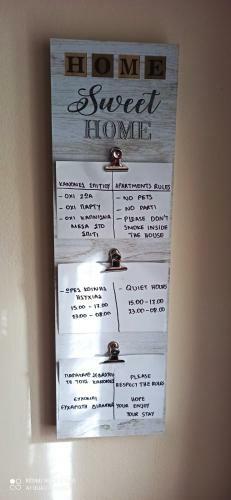 HOME
Sweet
HOME
ΚΑΝΟΝΕΣ ΣΠΙΤΙΟΥ
- ΟΧΙ ΖΩΑ
- ΟΧΙ ΠΑΡΤΥ
- ΟΧΙ ΚΑΠΝΙΣΜΑ
ΜΕΣΑ ΣΤΟ
ΣΠΙΤΙ
APARTMENTS RULES
- NO PETS
- NO PARTI
- PLEASE DON'T
SMOKE INSIDE
THE HOUSE
- ΩΡΕΣ ΚΟΙΝΗΣ
ΗΣΥΧΙΑΣ
15:00 - 17:00
23:00 - 08:00
- QUIET HOURS
15:00-17:00
23:00-08:00
ΠΑΡΑΚΑΛΩ
ΚΑΝΟΝΕΣ
ΕΥΧΟΜΑΙ
PLEASE
RESPECT THE RULES
HOPE
YOUR ENJOY
YOUR STAY